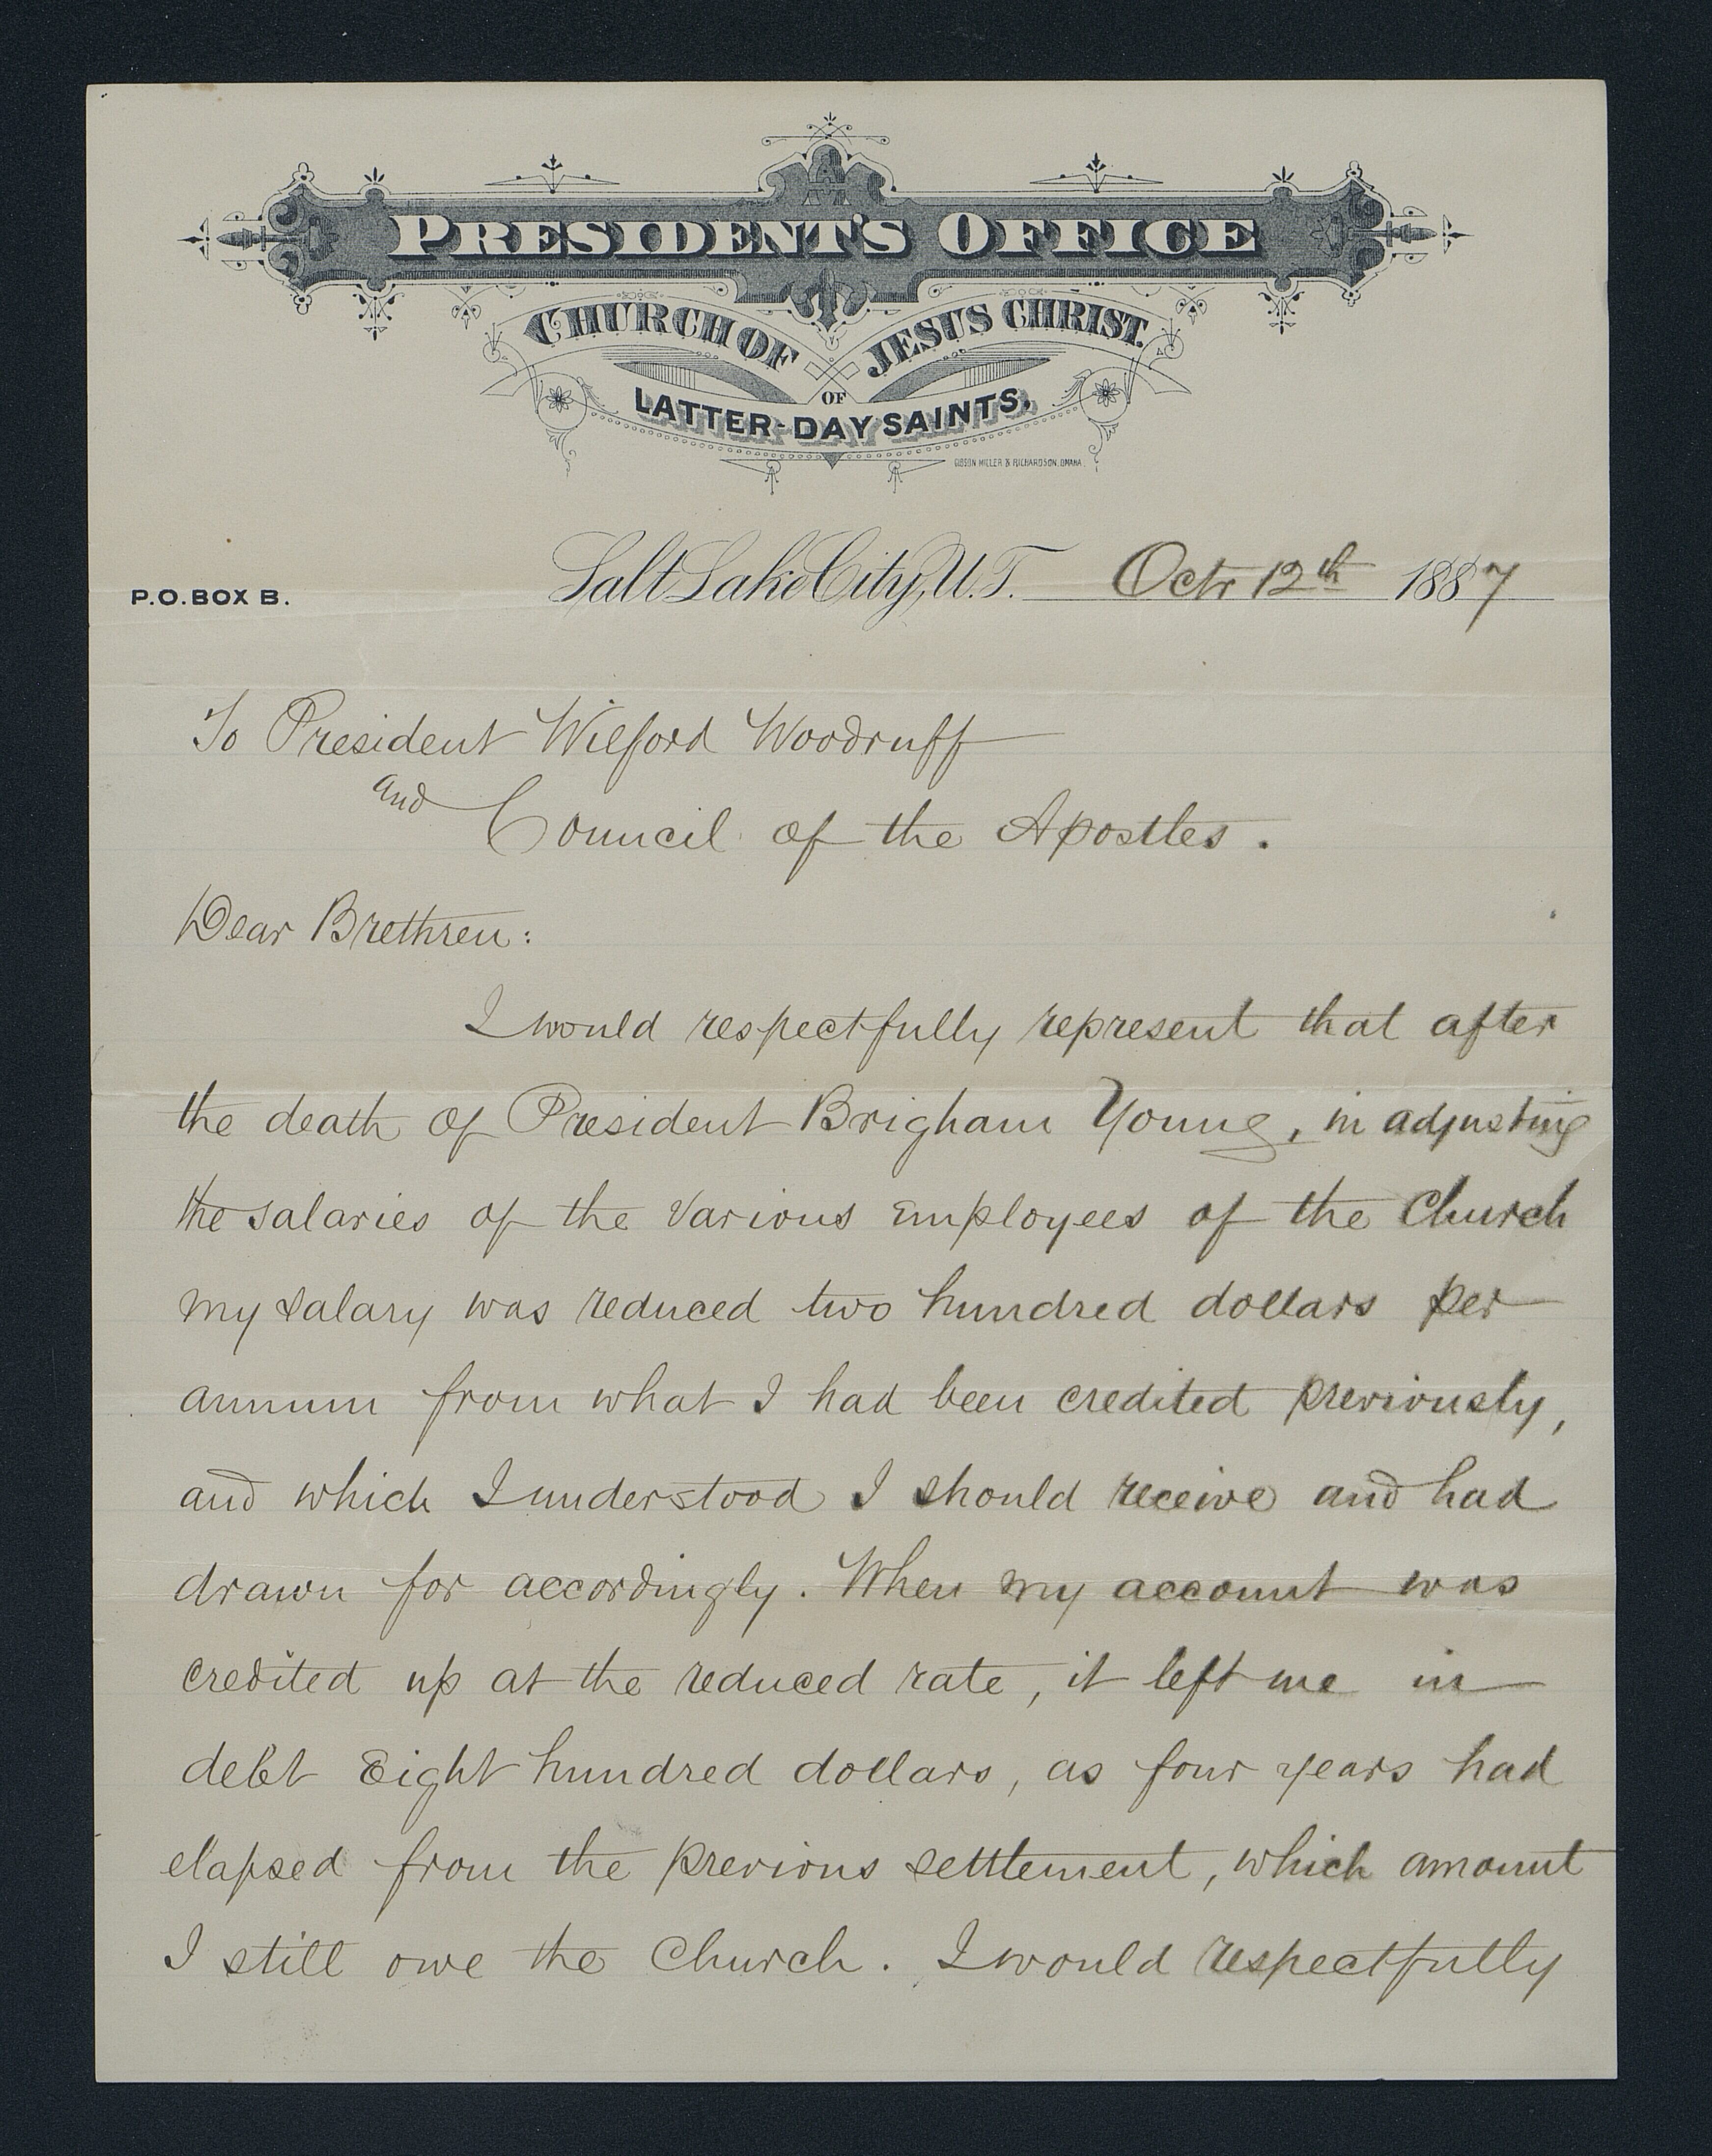 PRESIDENT'S OFFICE
CHURCH OF JESUS CHRIST.
OF
LATTER-DAY SAINTS.
GIBSON MILLER & RICHARDSON, OMAHA.
P.O. BOX B. Salt Lake City, U.T. Octr 12th 1887
To President Wilford Woodruff
and
Council of the Apostles.
Dear Brethren:
I would respectfully represent that after
the death of President Brigham Young, in adjusting
the salaries of the various employees of the Church
my salary was reduced two hundred dollars per
annum from what I had been credited previously,
and which I understood I should receive and had
drawn for accordingly. When my account was
credited up at the reduced rate, it left me in
debt Eight hundred dollars, as four years had
elapsed from the previous settlement, which amount
I still owe the Church. I would respectfully